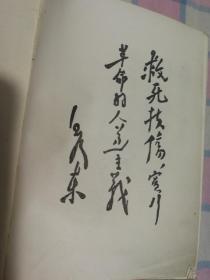 救死扶伤、实行
革命的人道主义
毛泽东